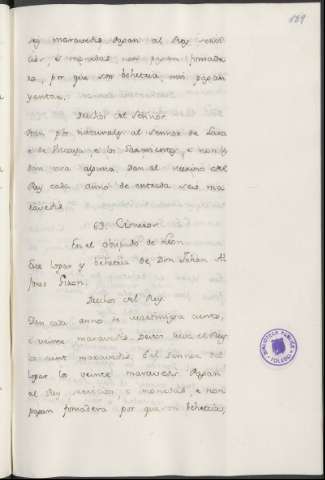 189
rey maravedis pagan al Rey servi-
cios, e monedas non pagan fonsade-
ra, por que son behetria, nin pagan
yantar.
Derechos del Sennor.
Dan por naturaleza al Sennor de Lara
e de Vizcaya, e los Sarmientos, e non
dan otra alguna. Dan al merino del
Rey cada anno de entrada seis ma-
ravedis.
63. Cisneros
En el obispado de Leon.
Este logar es behetria de Don Johan Al-
fonso Giron.
Derechos del Rey.
Dan cada anno de martiniega ciento,
e veinte maravedis. Destos lieva el Rey
los cient maravedis. E el Sennor del
logar los veinte maravedis. Pagan
al Rey servicios, e monedas, e non
pagan fonsadera por que son behetria,
BIBLIOTECA PUBLICA
TOLEDO